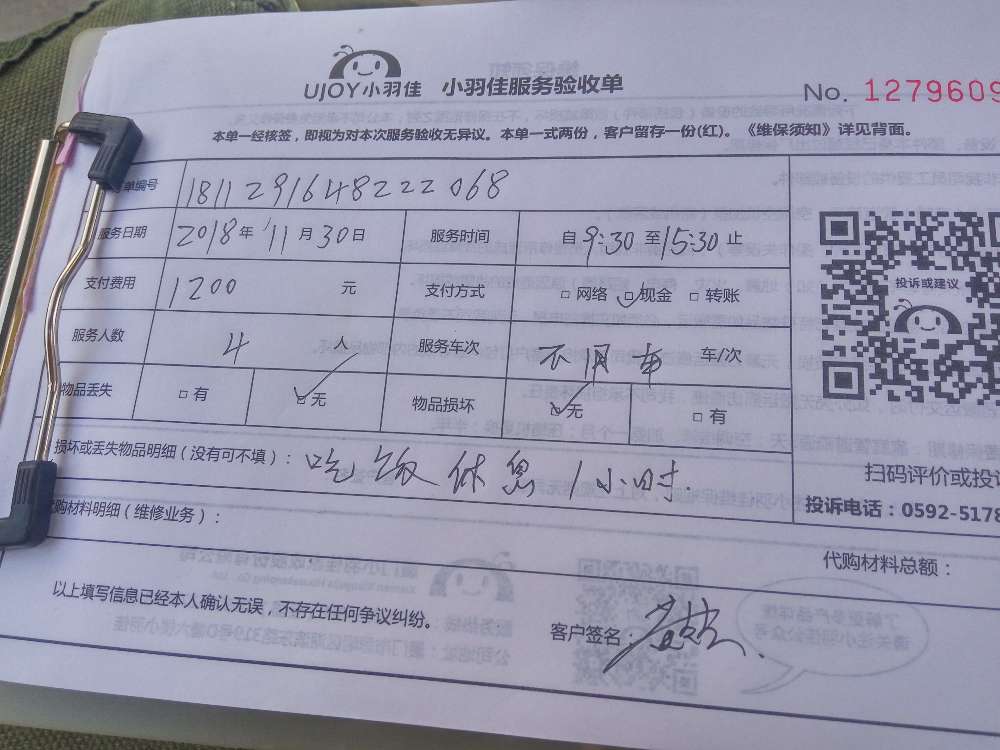 UJOY小羽佳 小羽佳服务验收单
No. 1279609
本单一经核签，即视为对本次服务验收无异议。本单一式两份，客户留存一份(红)。《维保须知》详见背面。
单编号 181129164822068
服务日期 2018年11月30日 服务时间 自9:30至15:30止
支付费用 1200 元 支付方式 □网络 ☑现金 □转账
服务人数 4 人 服务车次 不用车 车/次
物品丢失 □有 ☑无 物品损坏 ☑无 □有
损坏或丢失物品明细（没有可不填）：吃饭休息1小时.
购材料明细（维修业务）：
投诉或建议
扫码评价或投诉
投诉电话：0592-5178
代购材料总额：
以上填写信息已经本人确认无误，不存在任何争议纠纷。
客户签名：